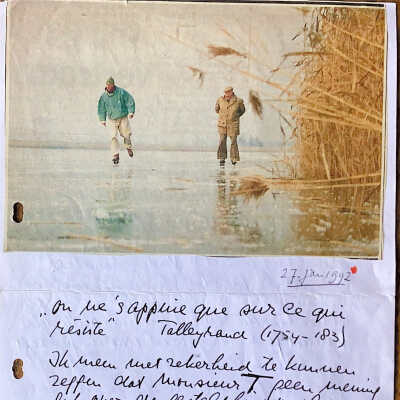 27. jan. 1992
„on ne s'appuie que sur ce qui
résiste" Talleyrand (1754-183)
Ik meen met zekerheid te kunnen
zeggen dat Monsieur T geen mening